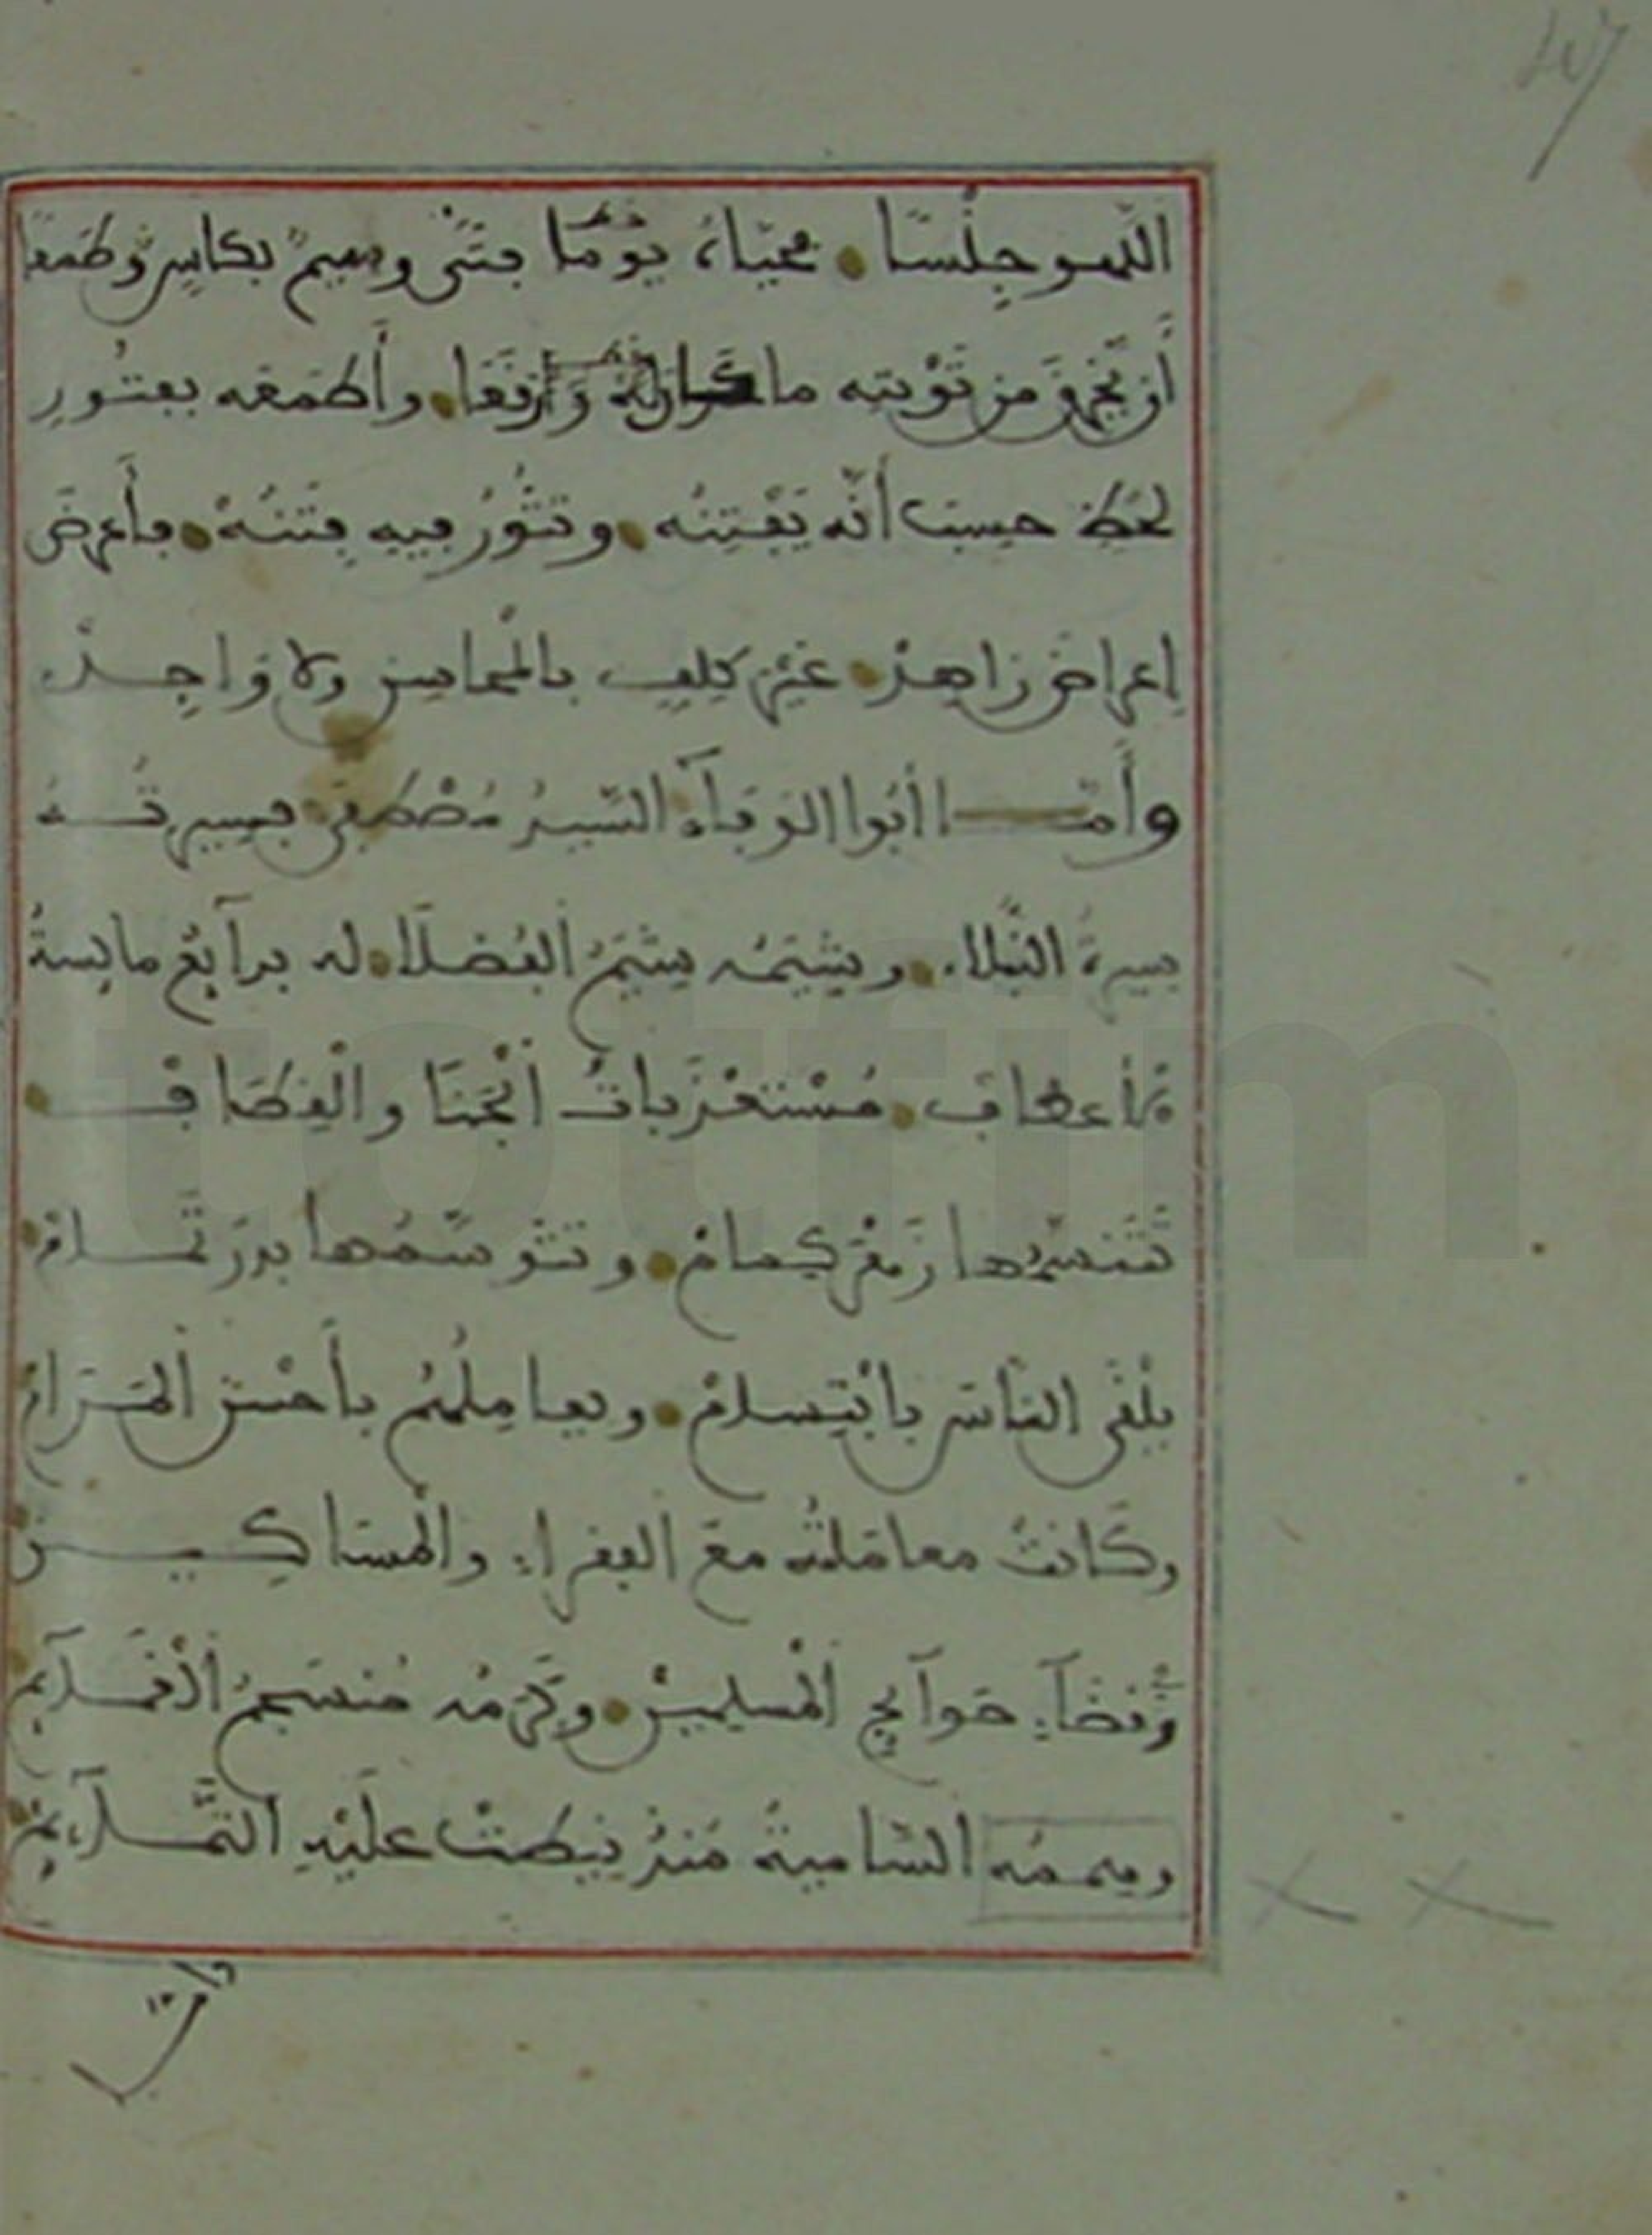 اللهو جِلْسًا محيّاهُ يَوْمًا بفتًى وسيم بكاسٍ وطَمَعَا
أن يَخْرِقَ من تَوْبتِه ما كان له رَقَعَا وأطمَعَه بفتُورِ
لحظٍ حسِبَ أنّه يَفْتِنُه وتثُورُ فيهِ فِتنُهْ فأَعرضَ
إعراضَ زاهِدْ غيْرِ كلِفٍ بالمحاسِن ولا وَاجِدْ
وأمّا أبُوا الوَفاءِ السّيدُ مُصْطفى فسِيرتُهُ
سيرةُ النُّبلاء وشِيَمُه شِيَمُ الفُضلَا له بدآئِع مائِسةُ
الأعطاف مُسْتعْذَباتُ الْجَنَا والْقِطَافْ
تَتَنسّمُها زَهْرَ كِمامْ وتَتَوسّمُها بدرَ تَمامْ
يلْقى الناسَ بابْتِسامْ ويعامِلُهُم بأحْسنِ المَرَامْ
وكَانتْ معامَلتُه معَ الفقراءِ والْمسَاكِين
وقضآءِ حَوآئِجِ الْمسلِمينْ وكَرمُه مُنسَجمُ الْغَمَآئِم
وهِممُه السّاميةُ مُنذُ نِيطَتْ علَيْهِ التَّمآئِمْ